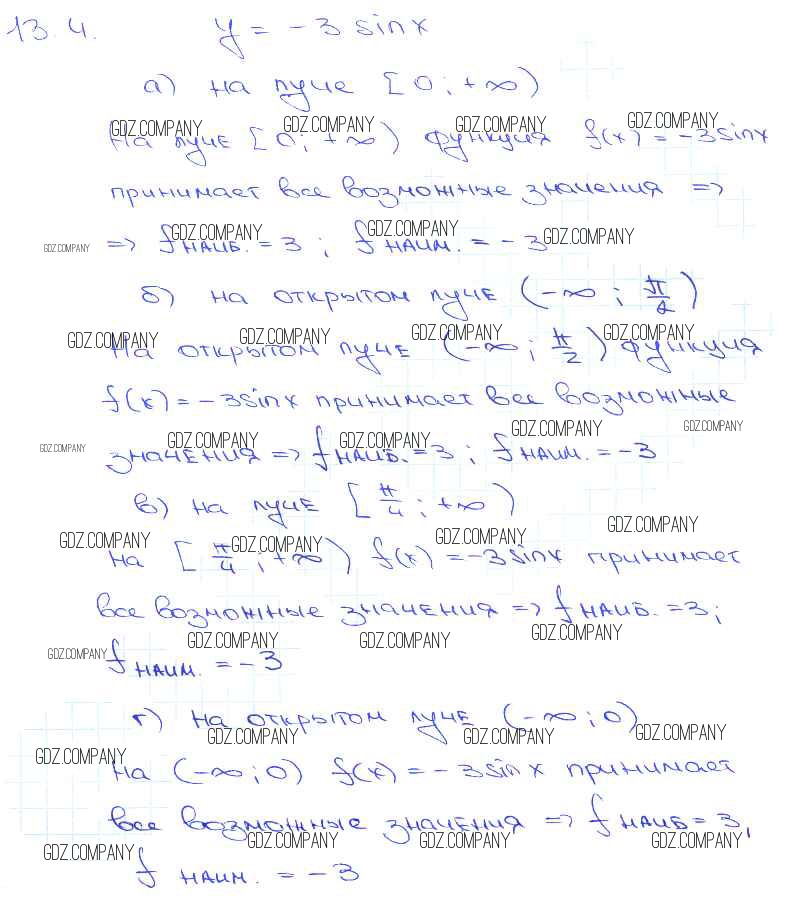 13.4. y = -3 sinx
а) на луче [0; +∞)
GDZ.COMPANY GDZ.COMPANY GDZ.COMPANY GDZ.COMPANY
На луче [0; +∞) функция f(x) = -3sinx
принимает все возможные значения =>
GDZ.COMPANY GDZ.COMPANY GDZ.COMPANY GDZ.COMPANY
=> f НАИБ. = 3 ; f НАИМ. = -3
б) на открытом луче (-∞; π/2)
GDZ.COMPANY GDZ.COMPANY GDZ.COMPANY GDZ.COMPANY
На открытом луче (-∞; π/2) функция
f(x) = -3sinx принимает все возможные
GDZ.COMPANY GDZ.COMPANY GDZ.COMPANY GDZ.COMPANY GDZ.COMPANY
значения => f НАИБ. = 3 ; f НАИМ. = -3
в) на луче [π/4; +∞)
GDZ.COMPANY GDZ.COMPANY GDZ.COMPANY GDZ.COMPANY
на [π/4; +∞) f(x) = -3sinx принимает
все возможные значения => f НАИБ. = 3;
GDZ.COMPANY GDZ.COMPANY GDZ.COMPANY GDZ.COMPANY
f НАИМ. = -3
г) на открытом луче (-∞; 0)
GDZ.COMPANY GDZ.COMPANY GDZ.COMPANY GDZ.COMPANY
на (-∞; 0) f(x) = -3sinx принимает
все возможные значения => f НАИБ = 3,
GDZ.COMPANY GDZ.COMPANY GDZ.COMPANY GDZ.COMPANY
f НАИМ. = -3